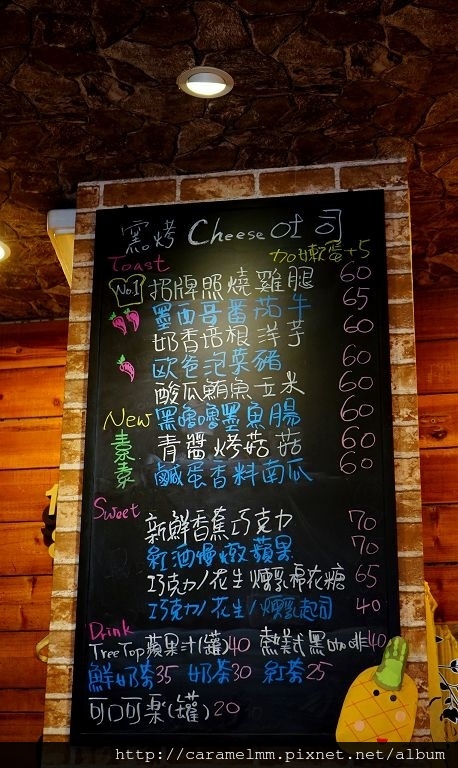 窯烤 Cheese 吐司
Toast 加嫩蛋+5
No.1 招牌照燒雞腿 60
墨西哥番茄牛 65
奶香培根洋芋 60
歐爸泡菜豬 60
酸瓜鮪魚玉米 60
New 黑嚕嚕墨魚腸 60
素 青醬烤菇菇 60
素 鹹蛋香料南瓜 60
Sweet
新鮮香蕉巧克力 70
紅酒慢燉蘋果 70
巧克力/花生/煉乳棉花糖 65
巧克力/花生/煉乳起司 40
Drink
Tree Top 蘋果汁(罐)40 熱美式黑咖啡40
鮮奶茶35 奶茶30 紅茶25
可口可樂(罐)20
http://caramelmm.pixnet.net/album